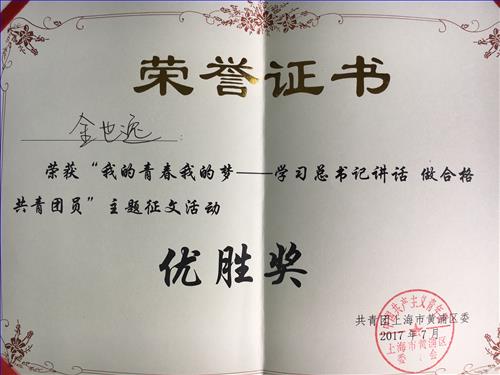 荣誉证书
金也逸：
荣获“我的青春我的梦——学习总书记讲话 做合格
共青团员”主题征文活动
优胜奖
共青团上海市黄浦区委
2017年7月